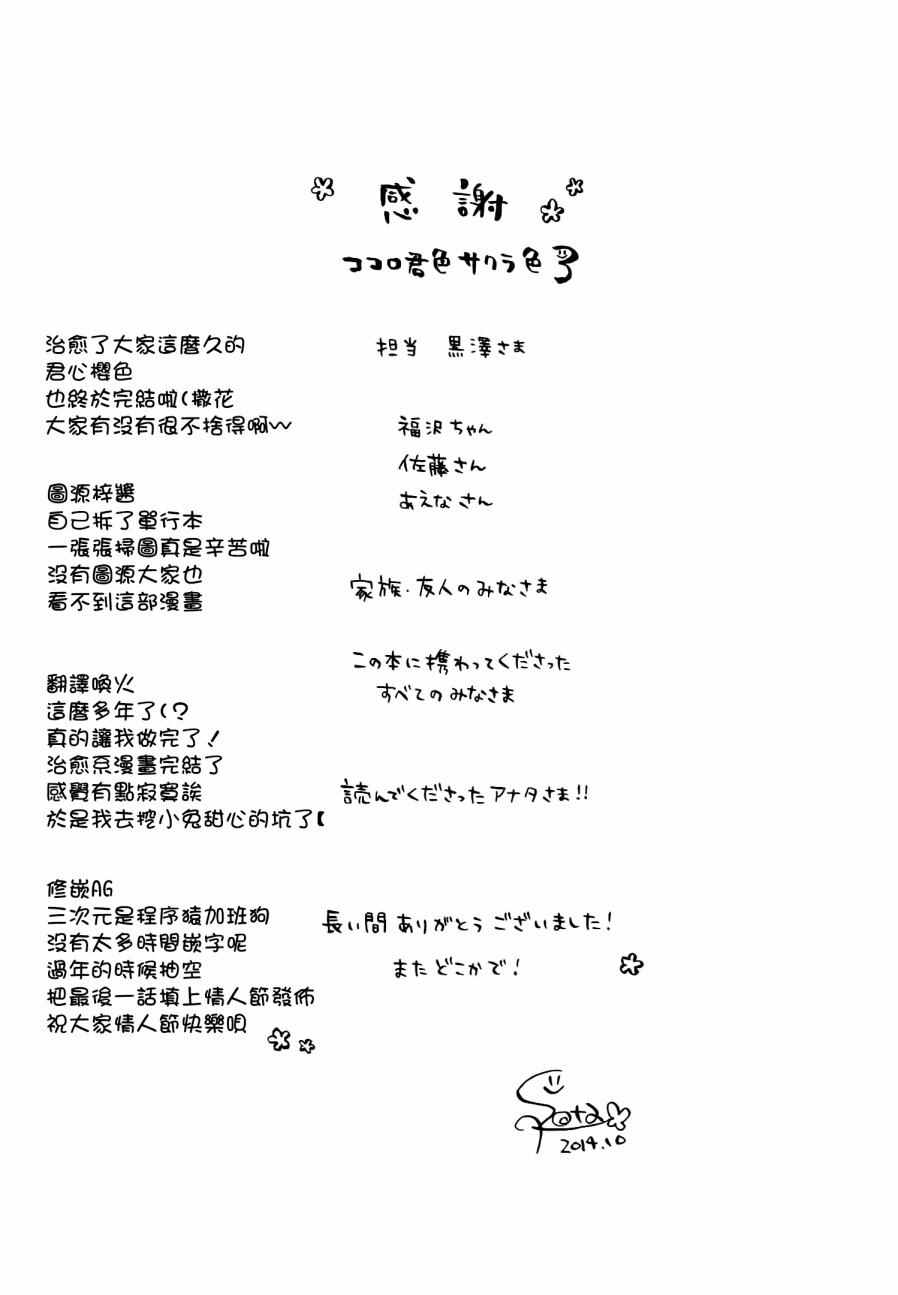 感謝
ココロ君色サクラ色3
治愈了大家這麼久的
君心櫻色
也終於完結啦(撒花
大家有沒有很不捨得啊~
圖源梓醬
自己拆了單行本
一張張掃圖真是辛苦啦
沒有圖源大家也
看不到這部漫畫
翻譯喚火
這麼多年了(?
真的讓我做完了!
治愈系漫畫完結了
感覺有點寂寞誒
於是我去挖小兔甜心的坑了【
修嵌AG
三次元是程序猿加班狗
沒有太多時間嵌字呢
過年的時候抽空
把最後一話填上情人節發佈
祝大家情人節快樂唄
担当 黒澤さま
福沢ちゃん
佐藤さん
あえなさん
家族・友人のみなさま
この本に携わってくださった
すべてのみなさま
読んでくださったアナタさま!!
長い間ありがとうございました!
またどこかで!
2014.10